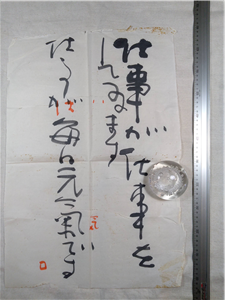 仕事が仕事を
してゐます
仕事が毎日元氣です